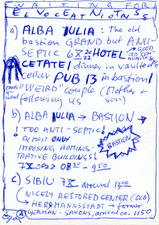 WAITING FOR
a) ALBA IULIA: The old
bastion GRAND BUT ANTI-
SEPTIC HOTEL
CETATE/dinner in vaulted
cellar PUB 13 in bastion/
"WEIRD" couple (Mother &
son) following us
b) ALBA IULIA → BASTION
TOO ANTI-SEPTIC
almost only
imposing, ADMINIS-
TRATIVE BUILDINGS
BASTION
c) SIBIU
NICELY RESTORED CENTER (OLD)
HERMANNSSTADT = former
GERMAN-SAXONS, arrived ca. 1150